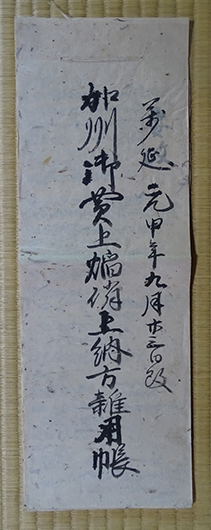 萬延元申年九月廿三日改
加州御買上焔硝上納方雑用帳